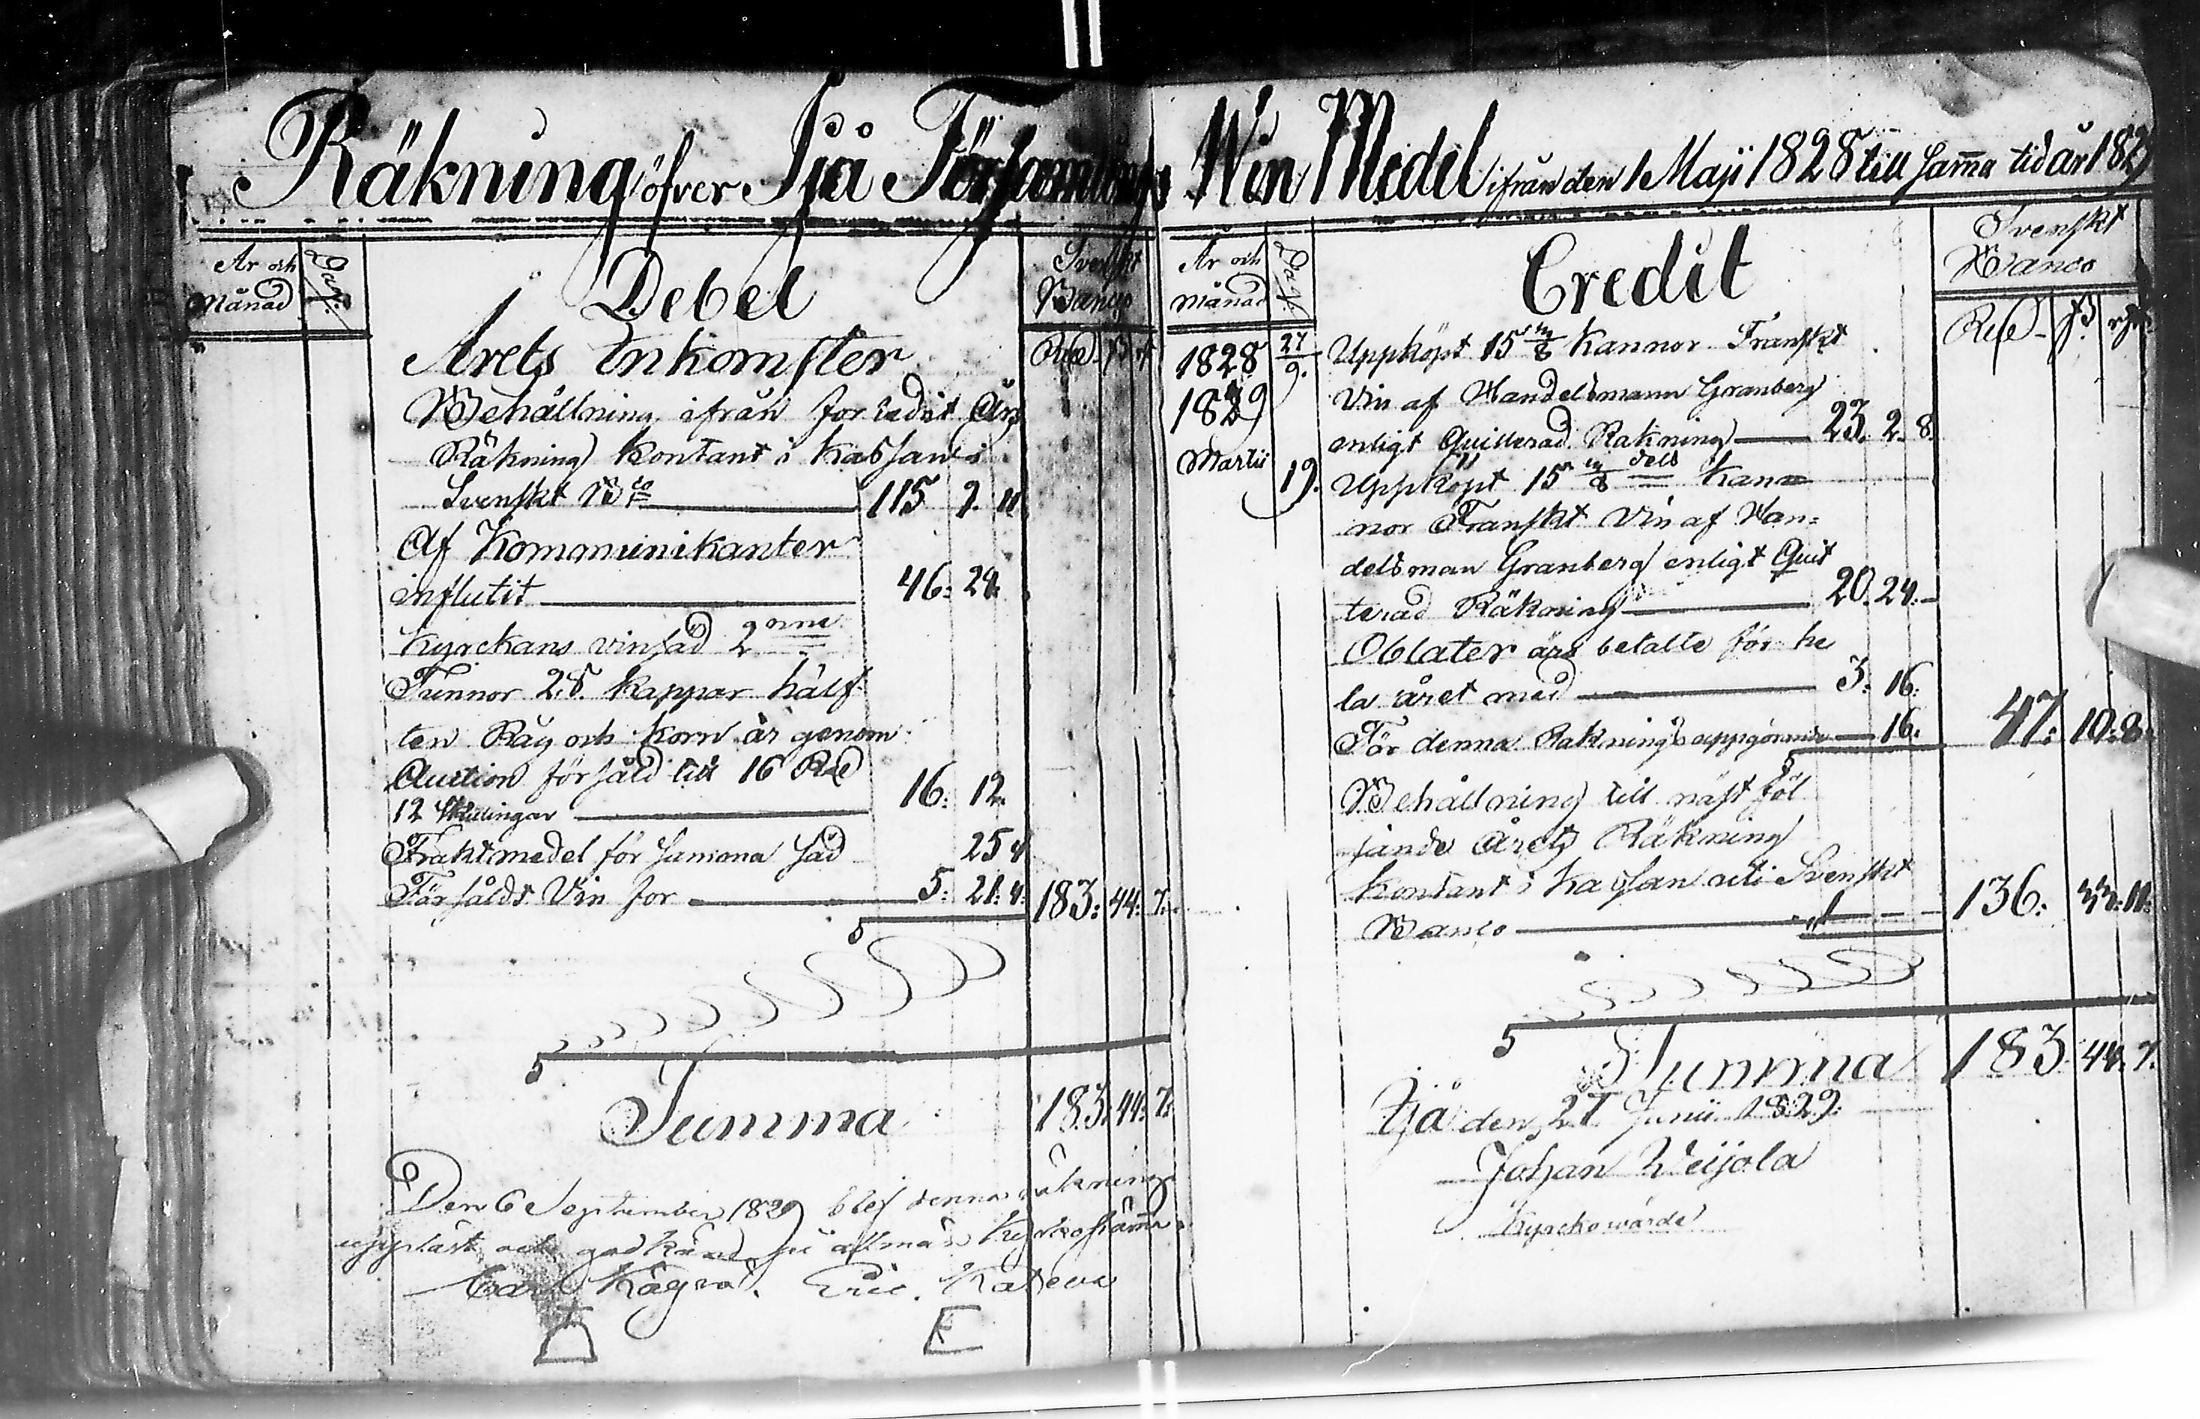 Räkning öfver Ijå Församlings Win Medel ifrån den 1 Maji 1828 till samma tid år 1829
År och Månad
Dat.
Debet
Svenskt Banco
Rd ß r
Årets Inkomster
Behållning ifrån förledit Års
Räkning kontant i Kassan i
Svenskt B:co 115 9. 11
Af Kommunikanter
influtit 46: 28.
Kyrckans vinsäd 2 nne
Tunnor 28. kappar hälf-
ten Råg och korn är genom
Auction försåld till 16 Rd
12 skillingar 16: 12.
Fraktmedel för samma säd 25 4
Försåldt Vin för 5: 21: 4. 183: 44: 7.
Summa 183: 44: 7.
Den 6 September 1829 blef denna räkning
uppläst och godkänd på allmän Kyrkostämma
Carl Kägrä. Eric Kateva
År och Månad
Dat.
Credit
Svenskt Banco
Rd ß r
1828 27/9. Uppköpt 15 in/8 Kannor Franskt
Vin af Handelsmann Granberg
enligt Quitterad Räkning 23. 2. 8.
1829 Martii 19. Uppköpt 15 in/8 dels Kan=
nor Franskt Vin af Han=
delsman Granberg enligt Quit
terad Räkning 20. 24. -
Oblater äro betalte för he
la året med 3: 16.
För denna Räknings uppgörande 16. 47: 10: 8.
Behållning till näst föl
jande Årets Räkning
kontant i Kassan uti Svenskt
Banco 136: 33: 11:
Summa 183 44. 7.
Ijå den 21 Junii 1829.
Johan Weijola
Kyrckowärde